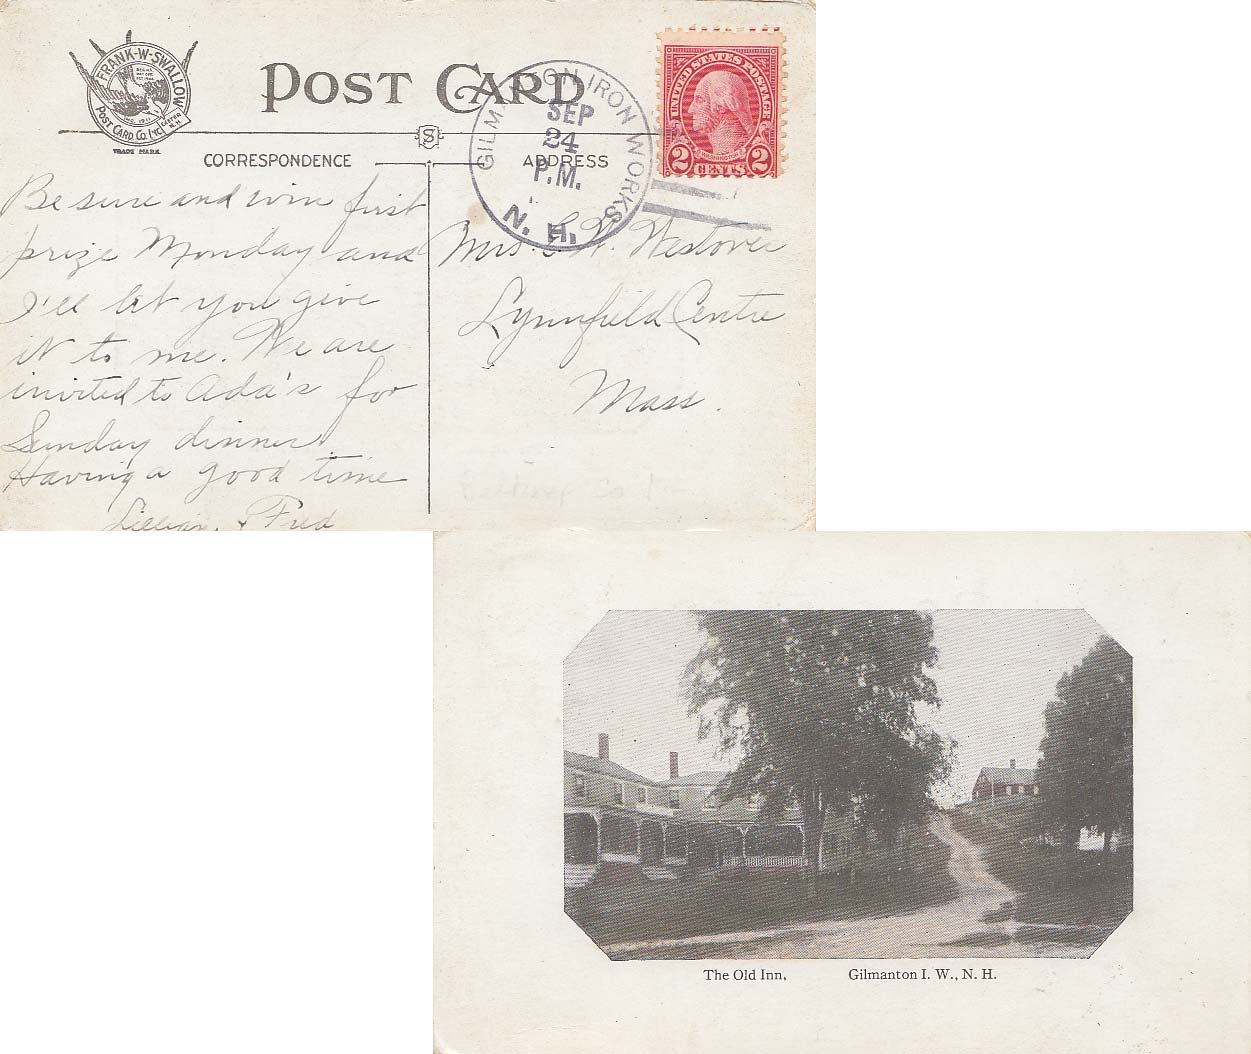 FRANK-W-SWALLOW
POST CARD CO. INC.
EXETER N.H.
TRADE MARK
POST CARD
S
CORRESPONDENCE
ADDRESS
GILMANTON IRON WORKS
SEP
24
P.M.
N. H.
UNITED STATES POSTAGE
WASHINGTON
2 CENTS 2
Be sure and win first
prize Monday and
I'll let you give
it to me. We are
invited to Ada's for
Sunday dinner
Having a good time
Lillian & Fred
Mrs. W. Westover
Lynnfield Centre
Mass.
The Old Inn, Gilmanton I. W., N. H.